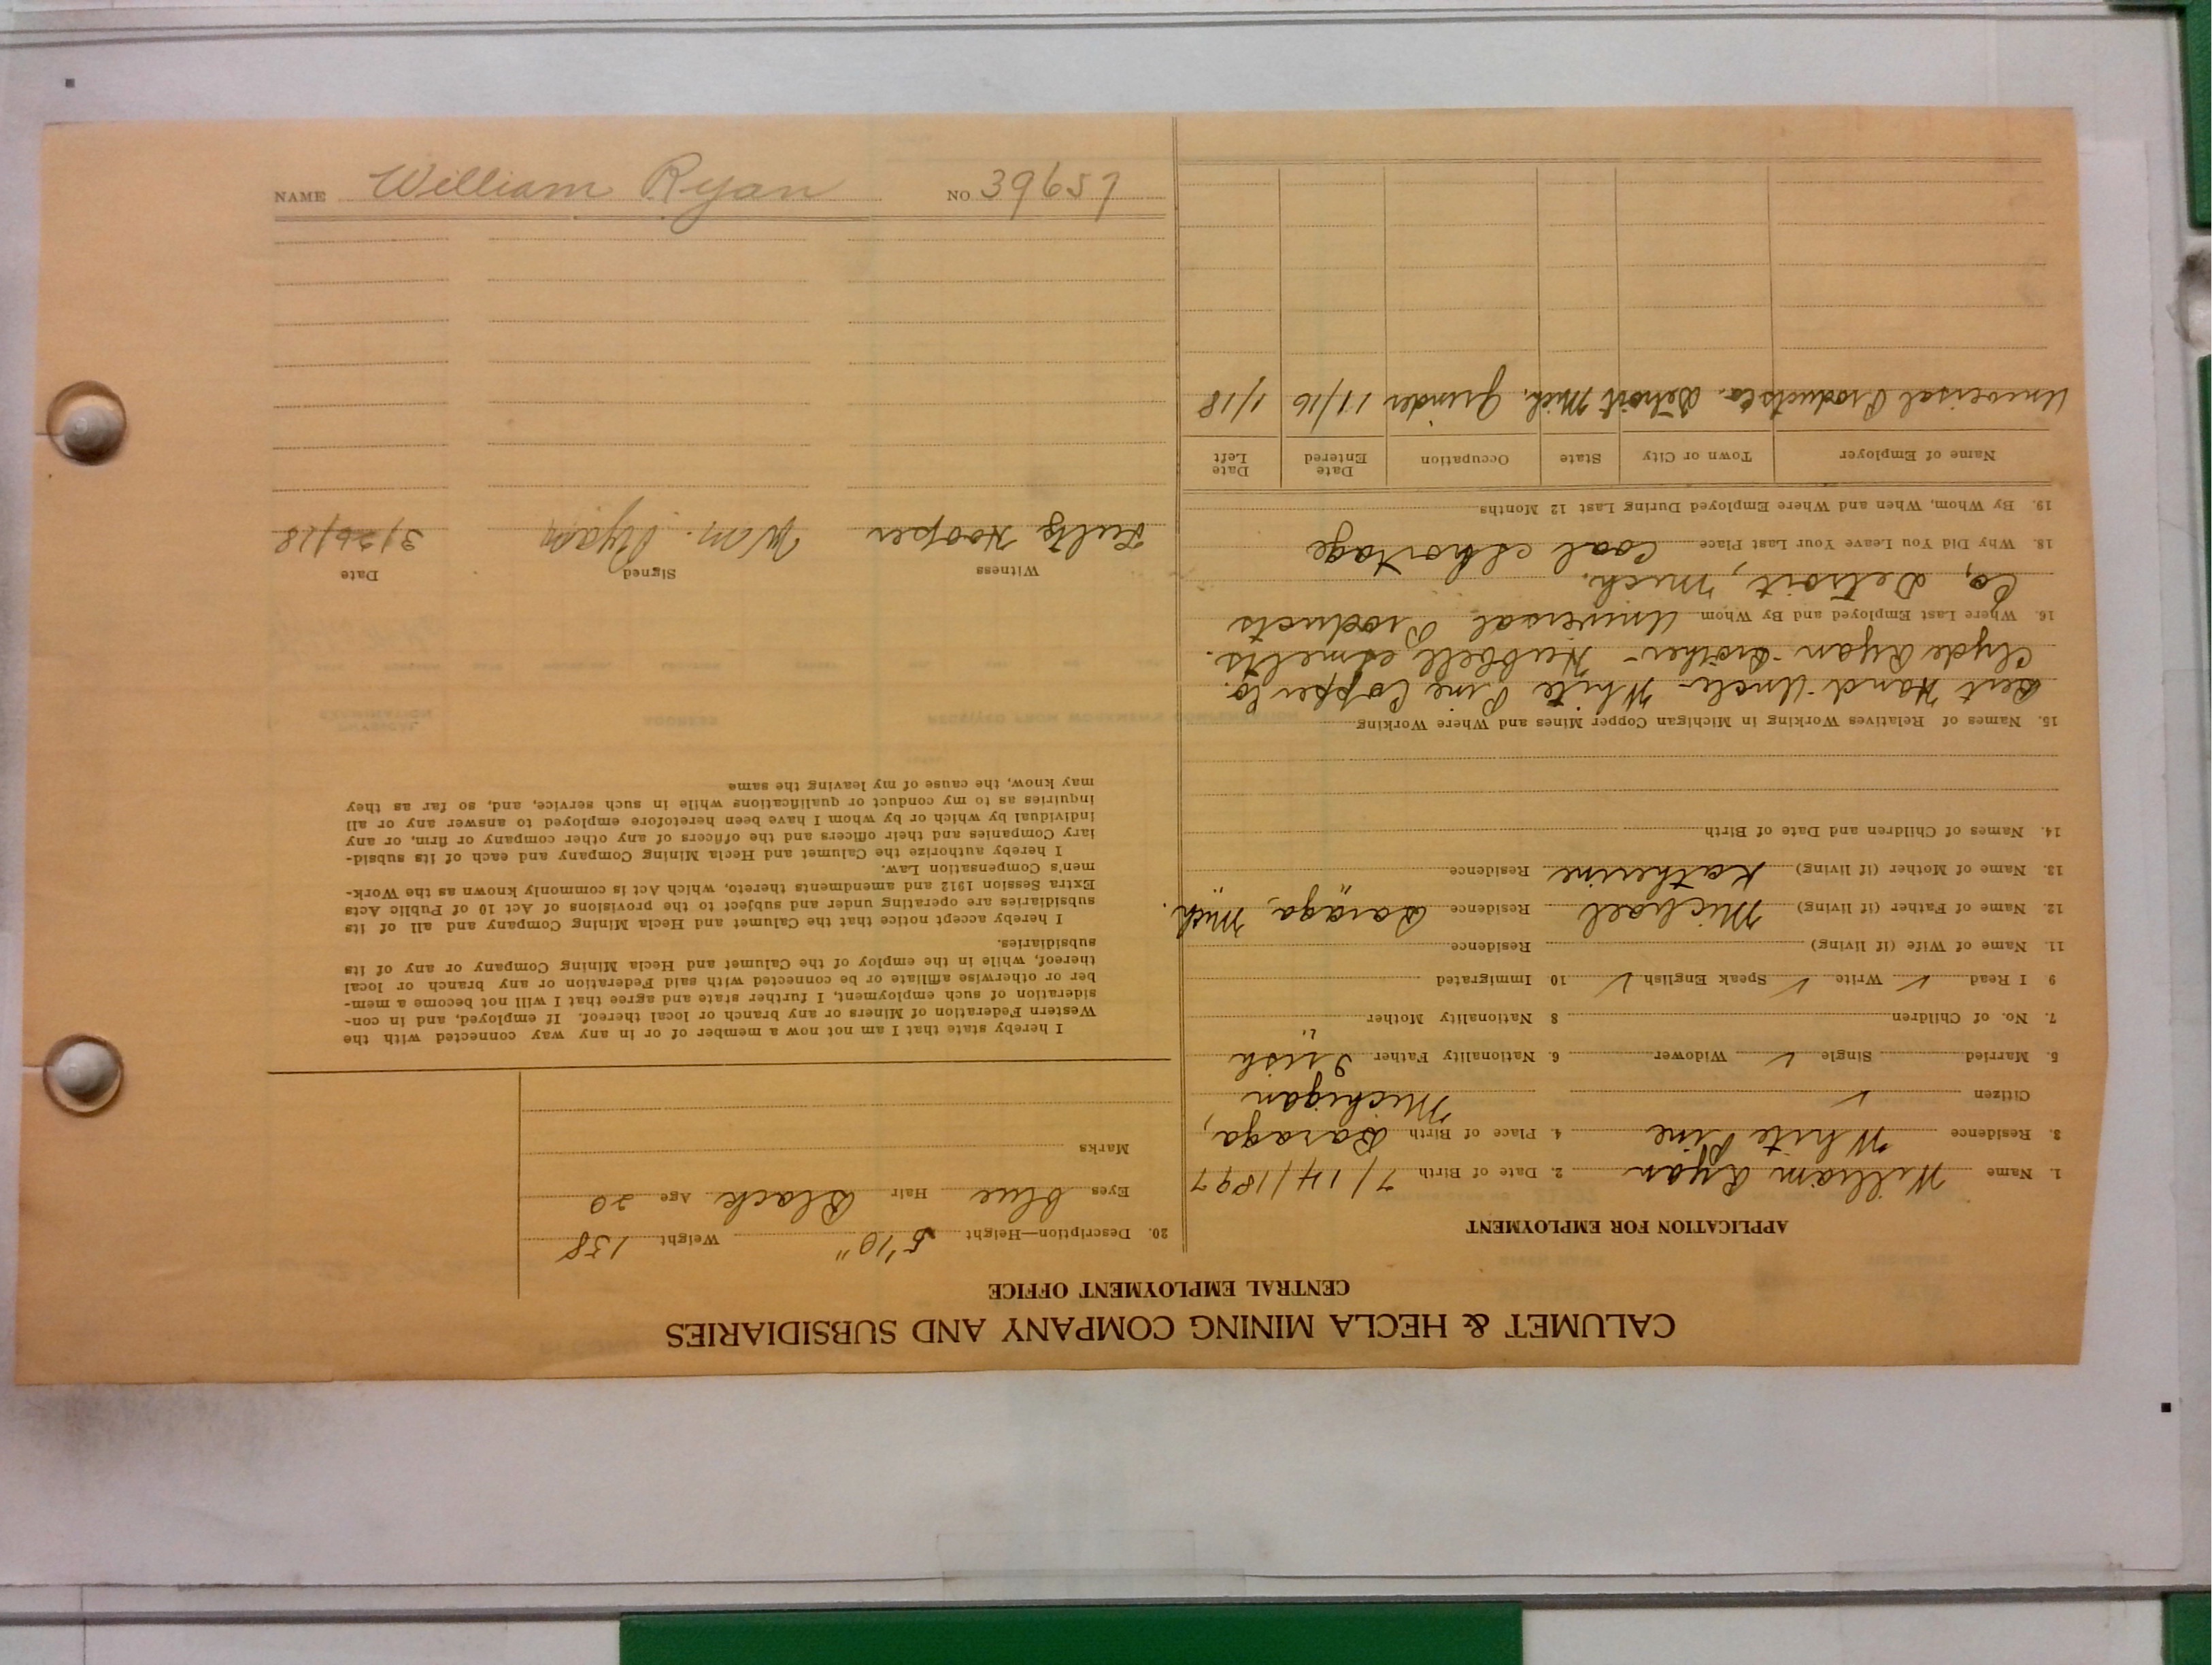 CALUMET & HECLA MINING COMPANY AND SUBSIDIARIES
CENTRAL EMPLOYMENT OFFICE
APPLICATION FOR EMPLOYMENT
1. Name William Ryan 2. Date of Birth 7/14/1897
3. Residence White Pine 4. Place of Birth Baraga,
Citizen ✓ Michigan
5. Married Single ✓ Widower 6. Nationality Father Irish
7. No. of Children 8 Nationality Mother "
9 I Read ✓ Write ✓ Speak English ✓ 10 Immigrated
11. Name of Wife (if living) Residence
12. Name of Father (if living) Michael Residence Baraga, Mich.
13. Name of Mother (if living) Katherine Residence " "
14. Names of Children and Date of Birth
15. Names of Relatives Working in Michigan Copper Mines and Where Working
Bert Hand-Uncle-White Pine Copper Co.
Clyde Ryan-Brother-Hubbell, Smelts.
16. Where Last Employed and By Whom Universal Products
Co, Detroit, Mich.
18. Why Did You Leave Your Last Place Coal shortage
19. By Whom, When and Where Employed During Last 12 Months
Name of Employer Town or City State Occupation Date Entered Date Left
Universal Products Co. Detroit Mich. Grinder 11/16 1/18
20. Description—Height 5'10" Weight 138
Eyes Blue Hair Black Age 20
Marks
I hereby state that I am not now a member of or in any way connected with the
Western Federation of Miners or any branch or local thereof. If employed, and in con-
sideration of such employment, I further state and agree that I will not become a mem-
ber or otherwise affiliate or be connected with said Federation or any branch or local
thereof, while in the employ of the Calumet and Hecla Mining Company or any of its
subsidiaries.
I hereby accept notice that the Calumet and Hecla Mining Company and all of its
subsidiaries are operating under and subject to the provisions of Act 10 of Public Acts
Extra Session 1912 and amendments thereto, which Act is commonly known as the Work-
men's Compensation Law.
I hereby authorize the Calumet and Hecla Mining Company and each of its subsid-
iary Companies and their officers and the officers of any other company or firm, or any
individual by which or by whom I have been heretofore employed to answer any or all
inquiries as to my conduct or qualifications while in such service, and, so far as they
may know, the cause of my leaving the same
Witness Signed Date
Hooper Wm. Ryan 3/26/18
NAME William Ryan NO. 39657